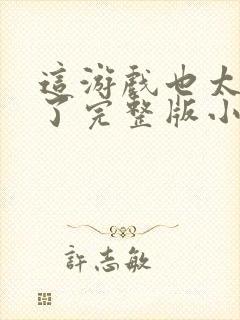 這游戲也太
了完整版小
許志敏